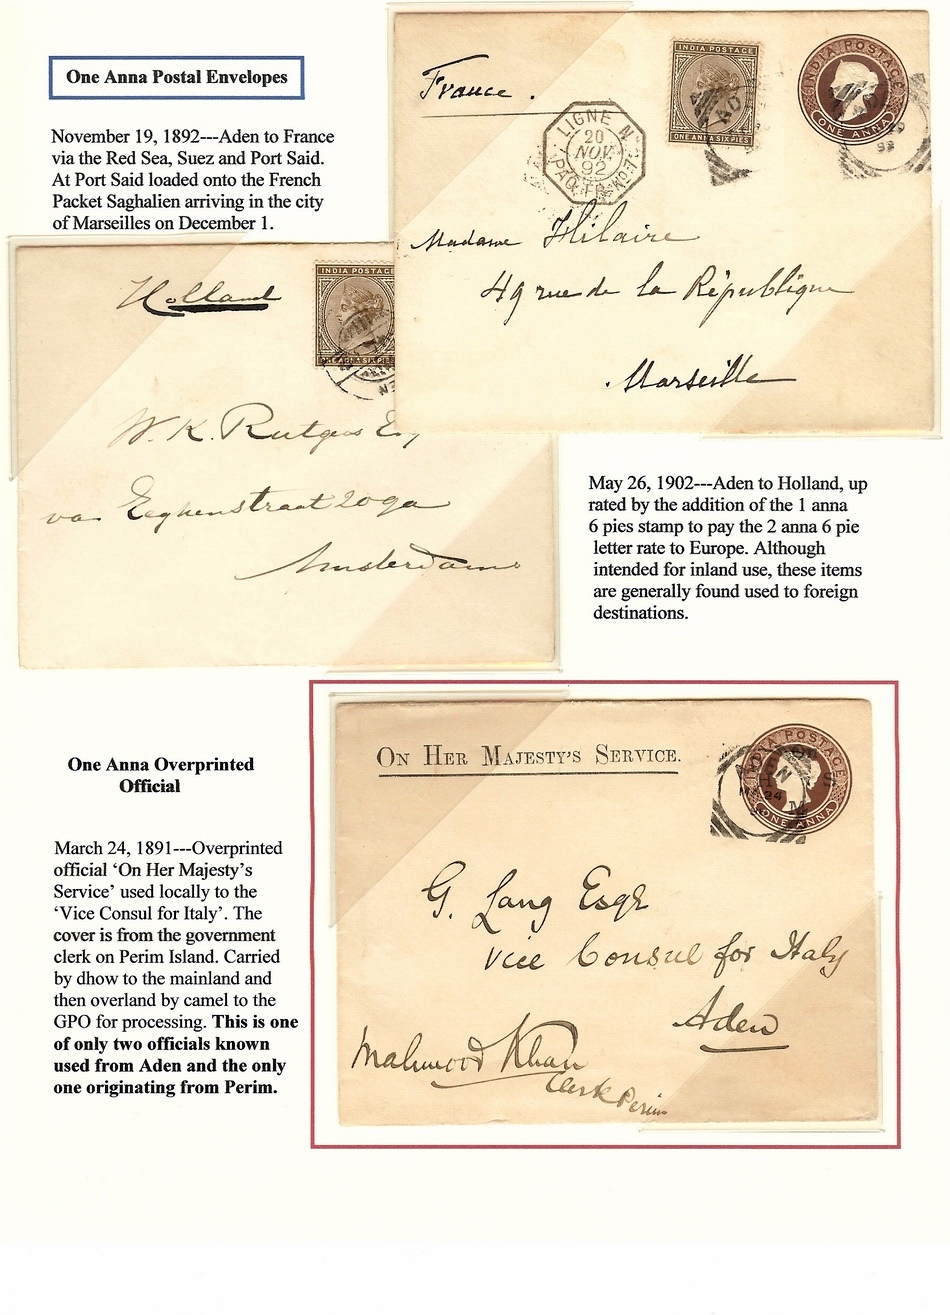 One Anna Postal Envelopes
November 19, 1892---Aden to France
via the Red Sea, Suez and Port Said.
At Port Said loaded onto the French
Packet Saghalien arriving in the city
of Marseilles on December 1.
France.
INDIA POSTAGE
ONE ANNA SIX PIES
INDIA POSTAGE
ONE ANNA
LIGNE N
20
NOV.
92
PAQ. FR.
Madame Hilaire
49 rue de la République
Marseille
Holland
INDIA POSTAGE
ONE ANNA SIX PIES
W. K. Rutgers Esq
van Eeghenstraat
Amsterdam
May 26, 1902---Aden to Holland, up
rated by the addition of the 1 anna
6 pies stamp to pay the 2 anna 6 pie
letter rate to Europe. Although
intended for inland use, these items
are generally found used to foreign
destinations.
One Anna Overprinted
Official
March 24, 1891---Overprinted
official ‘On Her Majesty’s
Service’ used locally to the
‘Vice Consul for Italy’. The
cover is from the government
clerk on Perim Island. Carried
by dhow to the mainland and
then overland by camel to the
GPO for processing. This is one
of only two officials known
used from Aden and the only
one originating from Perim.
ON HER MAJESTY'S SERVICE.
INDIA POSTAGE
ONE ANNA
G. Lang Esqr
Vice Consul for Italy
Aden
Mahmood Khan
Clerk Perim